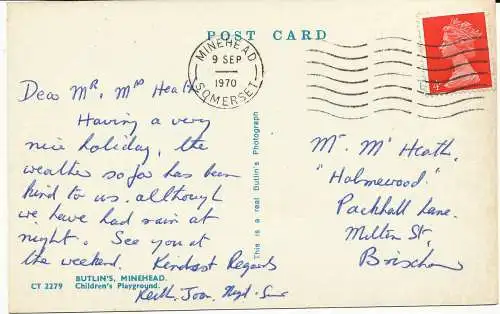 POST CARD
MINEHEAD
9 SEP
1970
SOMERSET
Dear Mr. Mrs Heath
Having a very
nice holiday, the
weather so far has been
kind to us. although
we have had rain at
night. See you at
the weekend. Kindest Regards
Keith, Joan,
This is a real Butlin's Photograph
Mr. M Heath,
"Holmewood"
Packhall Lane.
Milton St,
Brixham
BUTLIN'S, MINEHEAD.
CT 2279 Children's Playground.